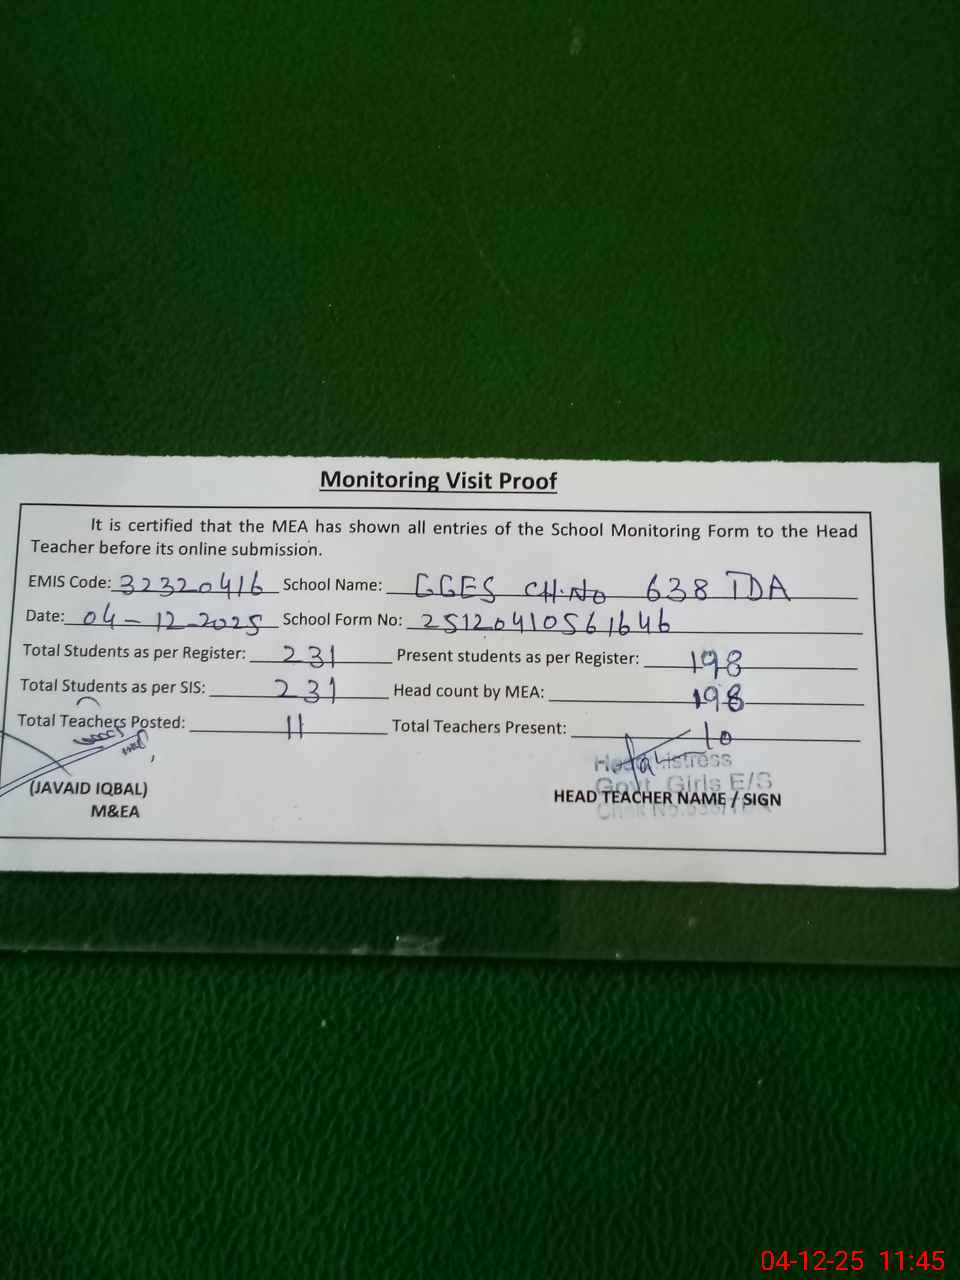 Monitoring Visit Proof
It is certified that the MEA has shown all entries of the School Monitoring Form to the Head
Teacher before its online submission.
EMIS Code: 32320416 School Name: GGES CH.No 638 TDA
Date: 04-12-2025 School Form No: 2512041056 1646
Total Students as per Register: 231 Present students as per Register: 198
Total Students as per SIS: 231 Head count by MEA: 198
Total Teachers Posted: 11 Total Teachers Present: 10
Headmistress
Govt. Girls E/S
(JAVAID IQBAL)
M&EA
HEAD TEACHER NAME / SIGN
04-12-25 11:45